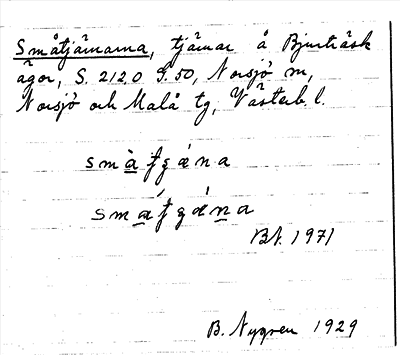 Småtjärnarna, tjärnar å Bjurträsk
ägor, S. 2120 G. 50, Norsjö sn,
Norsjö och Malå tg, Västerb. l.
småtjæna
småtjæna
Bd. 1971
B. Nygren 1929